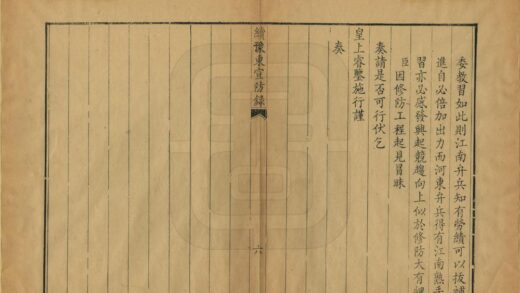 委教習如此則江南弁兵知有勞績可以拔補
進自必倍加出力而河東弁兵得有江南熟手
習亦必感發興起競趨向上似於修防大有裨
臣因修防工程起見冒昧
奏請是否可行伏乞
皇上睿鑒施行謹
奏
續豫東宣防錄
六